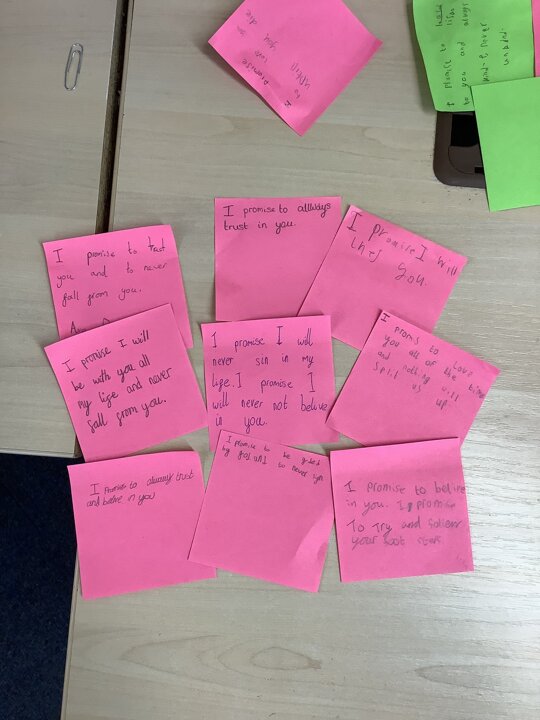 I promise
to love
you
I promise to
to you and always
kind & never
I promise to allways
trust in you.
I promise I will
you.
I promise to trust
you and to never
fall from you.
I promise I will
be with you all
my life and never
fall from you.
I promise I will
never sin in my
life. I promise I
will never not belive
in you.
I promis to Love
you all of the time
and nothing will
Split us up.
I Promise to always trust
and belive in you
I promise to be
by to never
I promise to belive
in you. I promise
To Try and
your foot steps